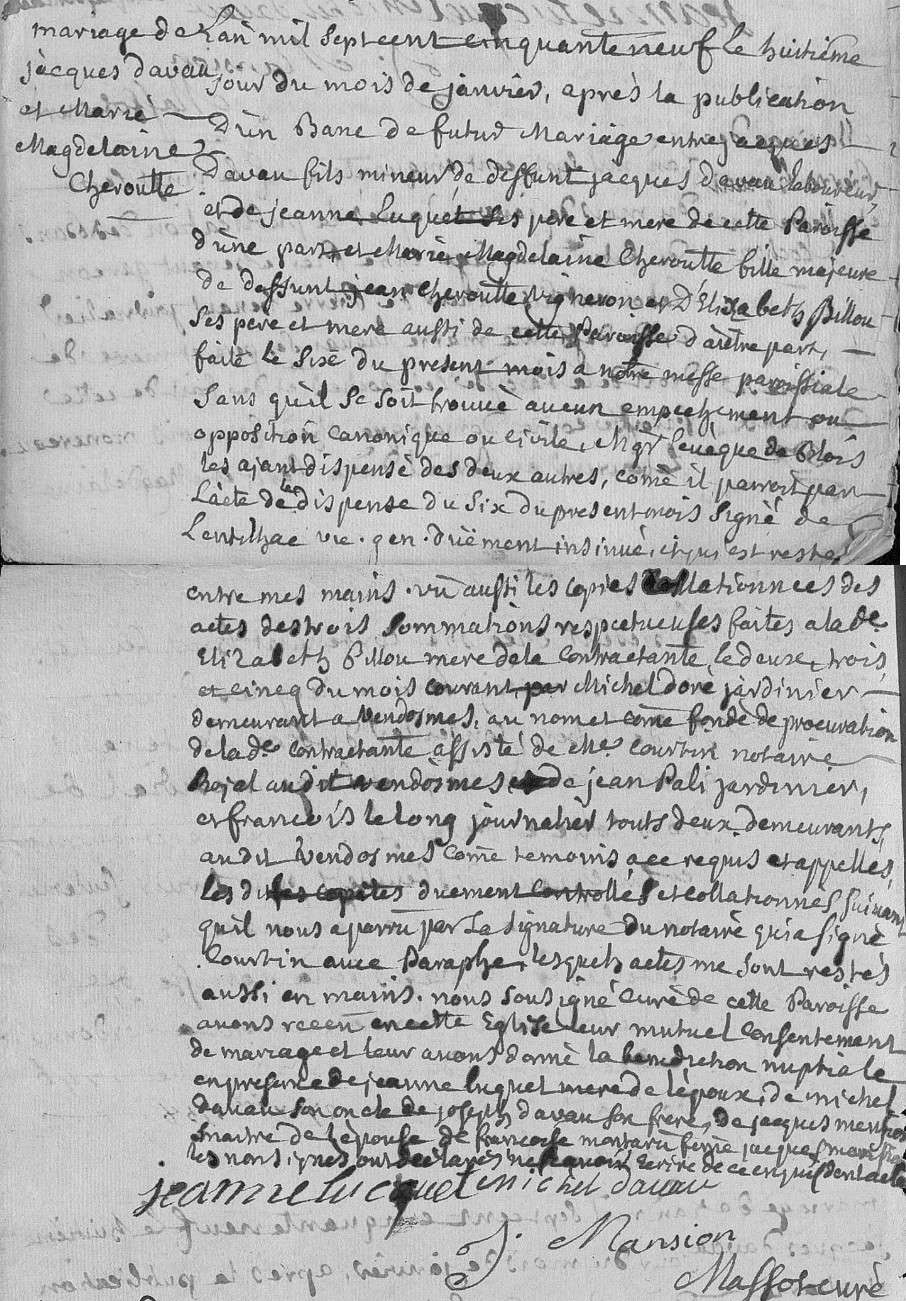 mariage de
jacques davau
et Marie
Magdelaine
Cheroutte
Lan mil sept cent cinquante neuf le huitième
jour du mois de janvier, après la publication
d'ùn Banc de futur Mariage entre jacques
Davau fils mineur de deffunt jacques davau laboureur
et de jeanne Luquet ses pere et mere de cette Paroisse
d'ùne part et Marie Magdelaine Cheroutte fille majeure
de deffunt jean Cheroutte vigneron et D'Elizabeth Pillou
ses pere et mere aussi de cette Paroisse d'autre part,
faite le sixe du present mois a notre messe paroissiale
sans qu'il se soit trouvé aucun empechement ou
opposition canonique ou civile, Mgr l'eveque de Blois
les ajant dispensé des deux autres, come il parroit par
l'acte de la dispense du six du present mois signé de
Lentilhac vic. gen. duëment insinué, et qui est resté
entre mes mains. vu aussi les copies Collationnees des
actes des trois sommations respectueuses faites a la de
Elizabeth Pillou mere de la contractante le deux, trois,
et cincq du mois courant par Michel doré jardinier
demeurant a Vendosmes, au nom et come fondé de procuration
de la de contractante assisté de Me courtin notaire
Rojal audit vendosmes, de jean Pali jardinier,
et francois le long journalier touts deux demeurants
audit Vendosmes come temoins a ce requis et appellés,
les dittes copies duement controllés et collationnés suivant
quil nous a parru par la signature du notaire qui a signé
Courtin avec Paraphe, lesquels actes me sont restés
aussi en mains. nous sousigné curé de cette Paroisse
avons receu en cette Eglise leur mutuel consentement
de mariage et leur avons donné la benediction nuptiale
en presence de jeanne luquet mere de l'époux, de michel
davau son oncle de joseph davau son frere, de jacques
maitre de l'épouse de francoise montaru feme jacques
les nons signes ont declarés ne scavoir Ecrire de ce enquis
jeanne lucquet michel davau
J. Mansion
Massot curé